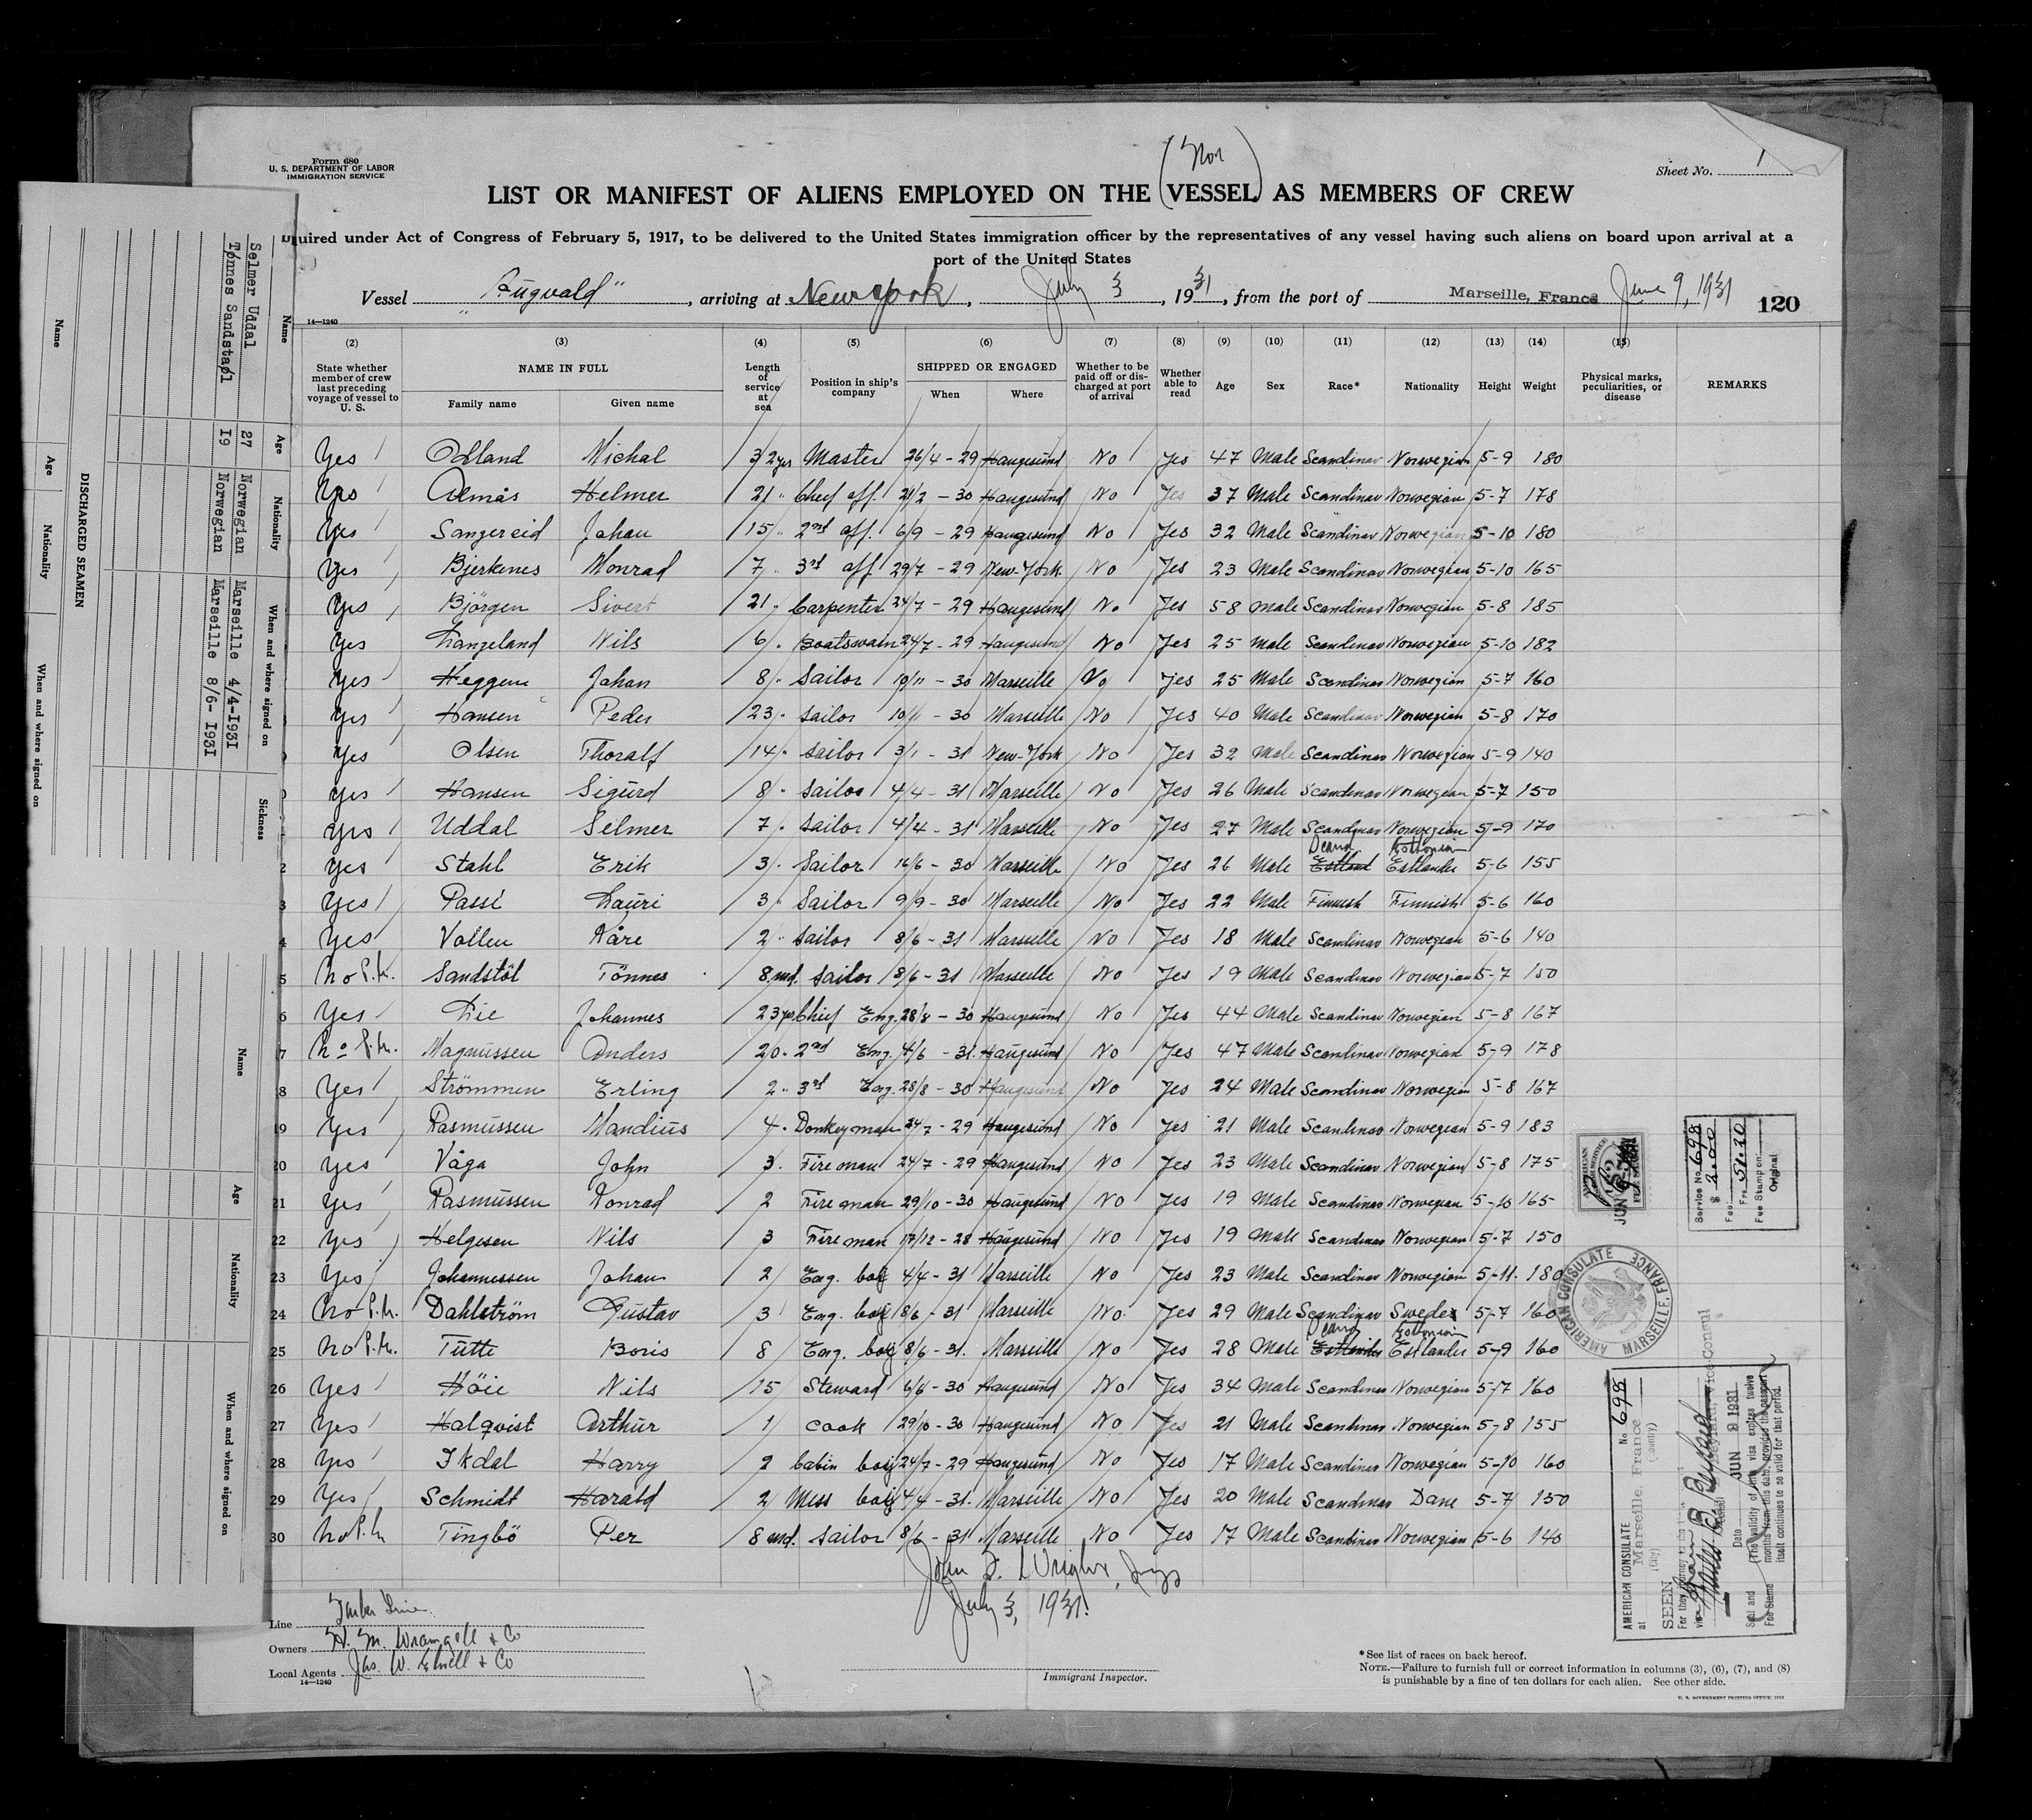 Form 680
U. S. DEPARTMENT OF LABOR
IMMIGRATION SERVICE
(Nor)
Sheet No. 1
LIST OR MANIFEST OF ALIENS EMPLOYED ON THE VESSEL AS MEMBERS OF CREW
uired under Act of Congress of February 5, 1917, to be delivered to the United States immigration officer by the representatives of any vessel having such aliens on board upon arrival at a
port of the United States
Vessel , arriving at New York , July 3 , 1931, from the port of Marseille, France June 9, 1931
120
14—1240
(2) (3) (4) (5) (6) (7) (8) (9) (10) (11) (12) (13) (14) (15)
State whether member of crew last preceding voyage of vessel to U. S.
NAME IN FULL
Family name Given name
Length of service at sea
Position in ship's company
SHIPPED OR ENGAGED
When Where
Whether to be paid off or discharged at port of arrival
Whether able to read
Age Sex Race* Nationality Height Weight
Physical marks, peculiarities, or disease
REMARKS
Yes Odland Michal 32 yrs Master 26/4 - 29 Haugesund No Yes 47 Male Scandinav Norwegian 5-9 180
Yes Almås Helmer 21 " Chief off. 21/2 - 30 Haugesund No Yes 37 Male Scandinav Norwegian 5-7 178
Yes Sangereid Johan 15 " 2nd off. 6/9 - 29 Haugesund No Yes 32 Male Scandinav Norwegian 5-10 180
Yes Bjerkenes Monrad 7 " 3rd off 29/7 - 29 New-York No Yes 23 Male Scandinav Norwegian 5-10 165
Yes Björgen Sivert 21 " Carpenter 24/7 - 29 Haugesund No Yes 58 Male Scandinav Norwegian 5-8 185
Yes Langeland Nils 6 " Boatswain 24/7 - 29 Haugesund No Yes 25 Male Scandinav Norwegian 5-10 182
Yes Heggem Johan 8 " Sailor 10/11 - 30 Marseille No Yes 25 Male Scandinav Norwegian 5-7 160
Yes Hansen Peder 23 " Sailor 10/11 - 30 Marseille No Yes 40 Male Scandinav Norwegian 5-8 170
Yes Olsen Thoralf 14 " Sailor 3/1 - 31 New-York No Yes 32 Male Scandinav Norwegian 5-9 140
Yes Hansen Sigurd 8 " Sailor 4/4 - 31 Marseille No Yes 26 Male Scandinav Norwegian 5-7 150
Yes Uddal Selmer 7 " Sailor 4/4 - 31 Marseille No Yes 27 Male Scandinav Norwegian 5-9 170
Scand Esthonian
2 Yes Stahl Erik 3 " Sailor 16/6 - 30 Marseille No Yes 26 Male Estland Estlander 5-6 155
3 Yes Passi Lauri 3 " Sailor 9/9 - 30 Marseille No Yes 22 Male Finnish Finnish 5-6 160
4 Yes Vollen Kåre 2 " Sailor 8/6 - 31 Marseille No Yes 18 Male Scandinav Norwegian 5-6 140
5 No P.H. Sandstöl Tönnes 8 md. Sailor 8/6 - 31 Marseille No Yes 19 Male Scandinav Norwegian 5-7 150
6 Yes Lie Johannes 23 yrs Chief Eng. 28/8 - 30 Haugesund No Yes 44 Male Scandinav Norwegian 5-8 167
7 No P.H. Magnussen Anders 20 " 2nd Eng. 4/6 - 31 Haugesund No Yes 47 Male Scandinav Norwegian 5-9 178
8 Yes Strömmen Erling 2 " 3rd Eng. 28/8 - 30 Haugesund No Yes 24 Male Scandinav Norwegian 5-8 167
19 Yes Rasmussen Mandius 4 " Donkeyman 24/7 - 29 Haugesund No Yes 21 Male Scandinav Norwegian 5-9 183
20 Yes Våga John 3 " Fireman 24/7 - 29 Haugesund No Yes 23 Male Scandinav Norwegian 5-8 175
21 Yes Rasmussen Konrad 2 Fireman 29/10 - 30 Haugesund No Yes 19 Male Scandinav Norwegian 5-10 165
22 Yes Helgesen Nils 3 Fireman 17/12 - 28 Haugesund No Yes 19 Male Scandinav Norwegian 5-7 150
23 Yes Johannessen Johan 2 Eng. boy 4/4 - 31 Marseille No Yes 23 Male Scandinav Norwegian 5-11 180
24 No P.H. Dahlström Gustav 3 Eng. boy 8/6 - 31 Marseille No Yes 29 Male Scandinav Swedes 5-7 160
Scand Esthonian
25 No P.H. Tutte Boris 8 Eng. boy 8/6 - 31 Marseille No Yes 28 Male Estlander Estlander 5-9 160
26 Yes Höie Nils 15 Steward 6/8 - 30 Haugesund No Yes 34 Male Scandinav Norwegian 5-7 160
27 Yes Halqvist Arthur 1 Cook 29/10 - 30 Haugesund No Yes 21 Male Scandinav Norwegian 5-8 155
28 Yes Ikdal Harry 2 Cabin boy 24/7 - 29 Haugesund No Yes 17 Male Scandinav Norwegian 5-10 160
29 Yes Schmidt Harald 2 Mess boy 4/4 - 31 Marseille No Yes 20 Male Scandinav Dane 5-7 150
30 No P.H. Tingbö Per 8 md. Sailor 8/6 - 31 Marseille No Yes 17 Male Scandinav Norwegian 5-6 140
John S. Wright, Insp
July 3, 1931.
Line Barber Line
Owners H. M. Wrangell & Co
Local Agents Jas. W. Elwell & Co
14—1240
Immigrant Inspector.
*See list of races on back hereof.
NOTE.—Failure to furnish full or correct information in columns (3), (6), (7), and (8)
is punishable by a fine of ten dollars for each alien. See other side.
U. S. GOVERNMENT PRINTING OFFICE
DISCHARGED SEAMEN
Name Age Nationality When and where signed on Sickness
Selmer Uddal 27 Norwegian Marseille 4/4-I93I
Tønnes Sandstøl I9 Norwegian Marseille 8/6-I93I
Name Age Nationality When and where signed on
Name Age Nationality When and where signed on
Service No. 698
Fee $ 2.00
Frs. 51.20
Fee Stamp on
Original
AMERICAN CONSULATE MARSEILLE, FRANCE
AMERICAN CONSULATE No 698
at Marseille, France
(City) (Country)
SEEN
Vice Consul
Date JUN 9 1931
(The validity of this visa expires twelve
months from this date, provided the passport
itself continues to be valid for that period.
Seal and
Fee Stamp